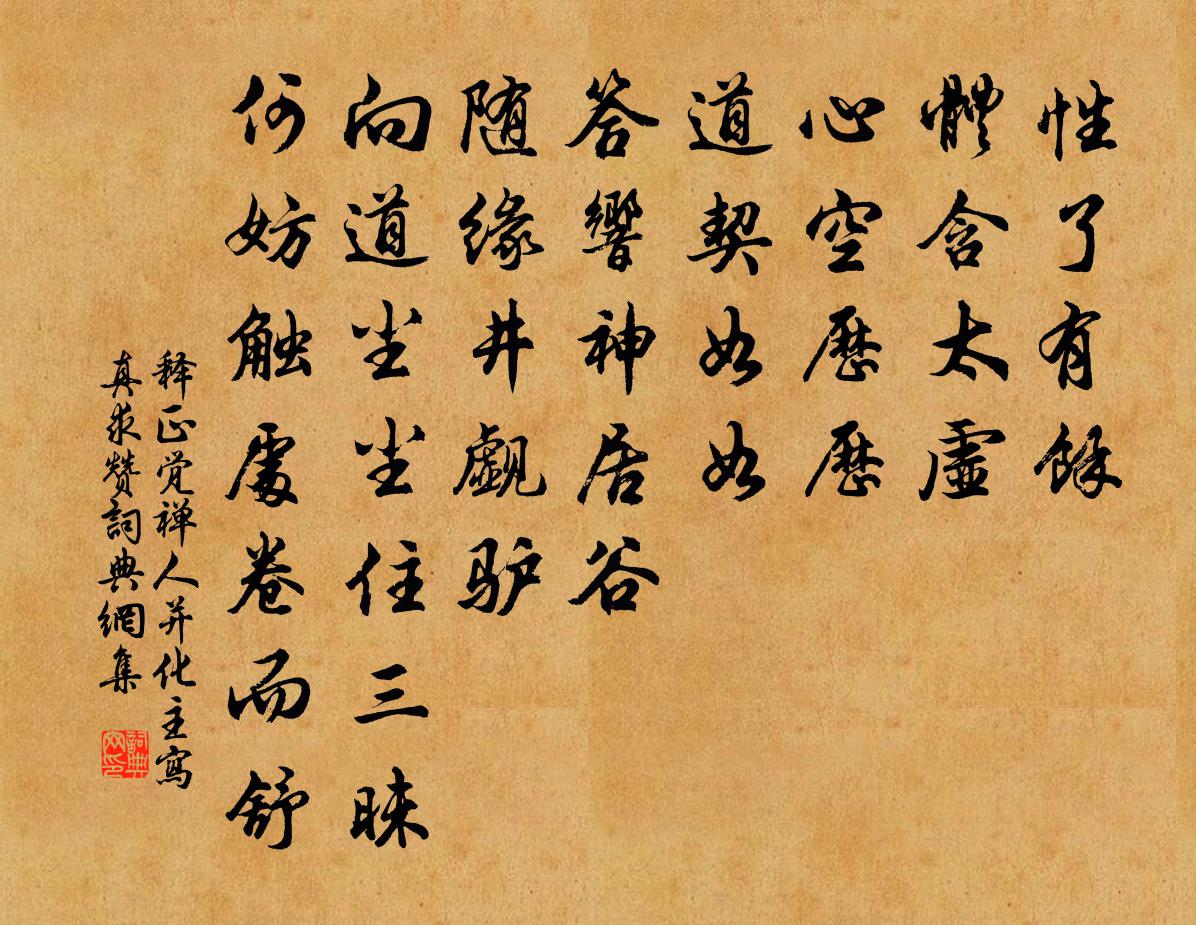 性了有餘
體含太虛
心空曆曆
道契如如
答響神居谷
随缘井覷驴
向道尘尘住三昧
何妨触處卷而舒
释正觉禅人并化主寫
真求赞詞典網集
詞典网印